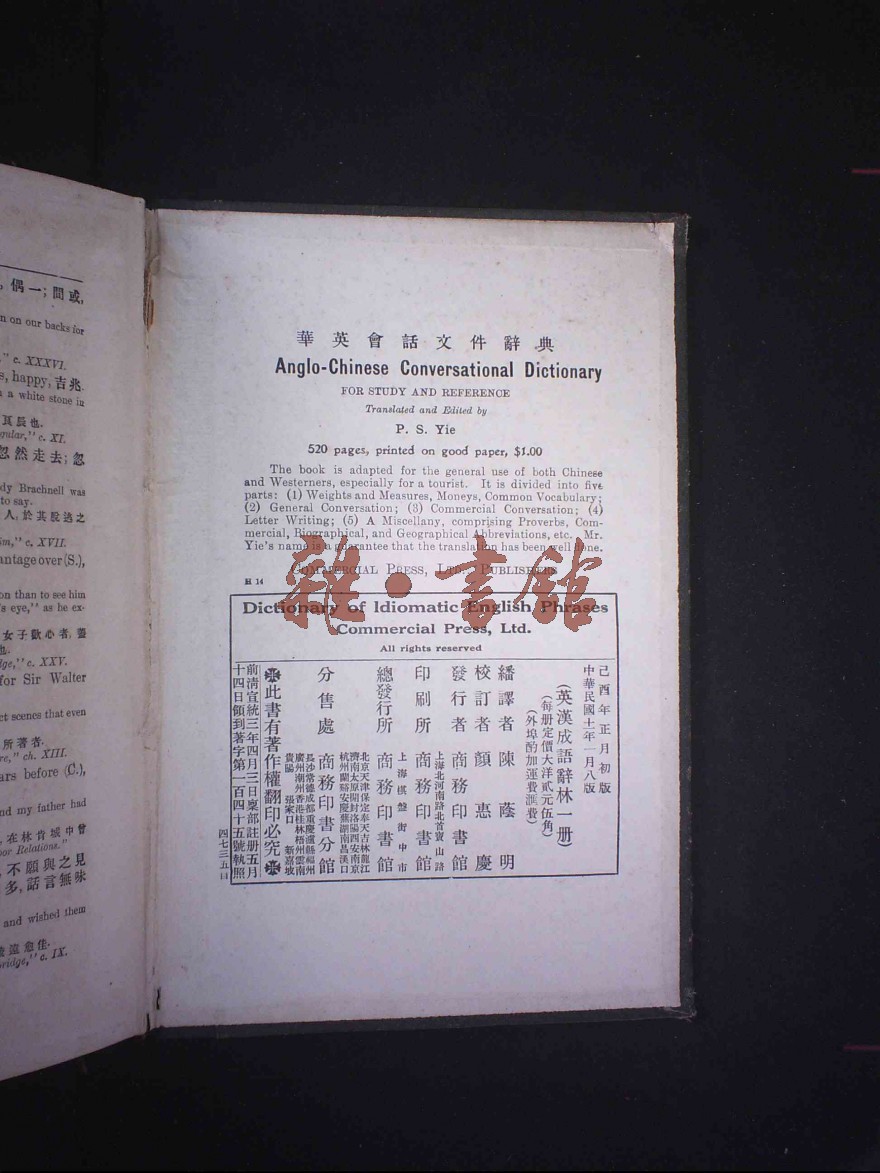 偶一;間或,
n on our backs for
" c. XXXVI.
s, happy, 吉兆.
a white stone in
其辰也.
gular," c. XI.
忽然走去;忽
dy Brachnell was
to say.
人,於其脫逃之
im," c. XVII.
antage over (S.),
on than to see him
's eye," as he ex-
女子歡心者,蓋
也.
dge," c. XXV.
for Sir Walter
ct scenes that even
所著者.
re," ch. XIII.
ars before (C.),
nd my father had
在林肯城中曾
oor Relations."
不願與之見
多,話言無味
and wished them
遠愈佳.
ridge," c. IX.
華英會話文件辭典
Anglo-Chinese Conversational Dictionary
FOR STUDY AND REFERENCE
Translated and Edited by
P. S. Yie
520 pages, printed on good paper, $1.00
The book is adapted for the general use of both Chinese
and Westerners, especially for a tourist. It is divided into five
parts: (1) Weights and Measures, Moneys, Common Vocabulary;
(2) General Conversation; (3) Commercial Conversation; (4)
Letter Writing; (5) A Miscellany, comprising Proverbs, Com-
mercial, Biographical, and Geographical Abbreviations, etc. Mr.
Yie's name is a guarantee that the translation has been well done.
COMMERCIAL PRESS, LTD., PUBLISHERS
H 14
雜·書館
Dictionary of Idiomatic English Phrases
Commercial Press, Ltd.
All rights reserved
己酉年正月初版
中華民國十二年一月八版
(英漢成語辭林一册)
(每册定價大洋貳元伍角)
(外埠酌加運費滙費)
繙譯者 陳蔭明
校訂者 顏惠慶
發行者 商務印書館
上海北河南路北首寶山路
印刷所 商務印書館
上海棋盤街中市
總發行所 商務印書館
北京天津保定奉天吉林龍江
濟南太原開封洛陽西安南京
杭州蘭谿安慶蕪湖南昌漢口
分售處 商務印書分館
長沙常德成都重慶瀘縣福州
廣州潮州香港桂林梧州雲南
貴陽 張家口 新嘉坡
此書有著作權翻印必究
前清宣統三年四月三日稟部註册五月
十四日領到著字第一百四十五號執照
四七三五口